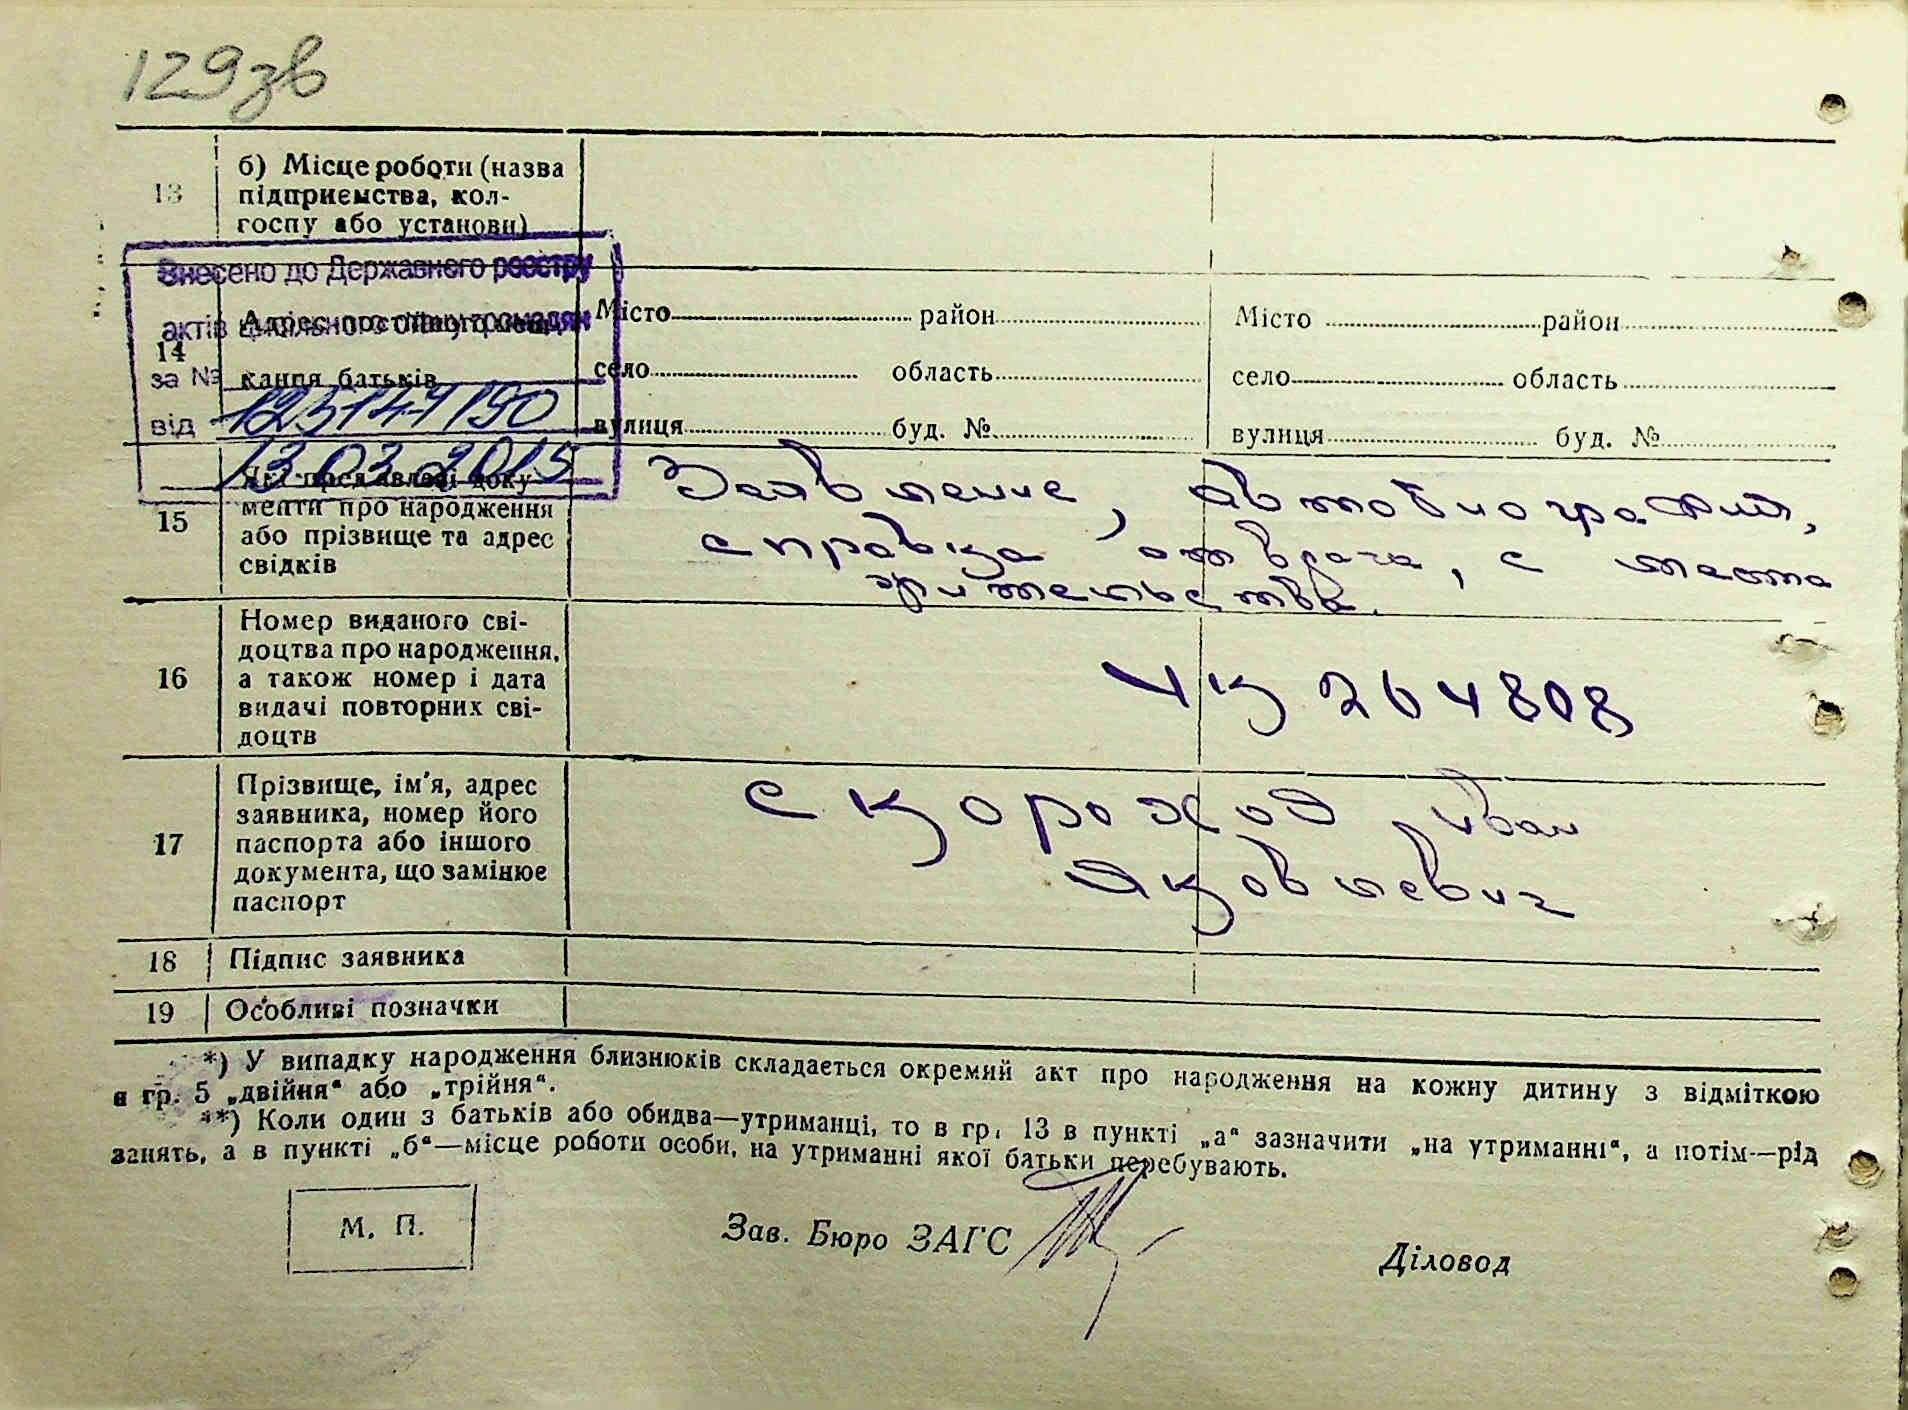 129зв
13 б) Місце роботи (назва
підприємства, кол-
госпу або установи)
Внесено до Державного реєстру
актів цивільного стану громадян
за №
125147190
від
13.03.2015
14 Адрес постійного меш-
кання батьків
Місто район
село область
вулиця буд. №
Місто район
село область
вулиця буд. №
15 Які пред'явлені доку-
менти про народження
або прізвище та адрес
свідків
Заявление, автобиография,
справка от врача, с места
жительства.
16 Номер виданого сві-
доцтва про народження,
а також номер і дата
видачі повторних сві-
доцтв
УК 264808
17 Прізвище, ім'я, адрес
заявника, номер його
паспорта або іншого
документа, що замінює
паспорт
Скороход Иван
Яковлевич
18 Підпис заявника
19 Особливі позначки
*) У випадку народження близнюків складається окремий акт про народження на кожну дитину з відміткою
в гр. 5 „двійня“ або „трійня“.
**) Коли один з батьків або обидва—утриманці, то в гр. 13 в пункті „а“ зазначити „на утриманні“, а потім—рід
занять, а в пункті „б“—місце роботи особи, на утриманні якої батьки перебувають.
М. П.
Зав. Бюро ЗАГС
Діловод